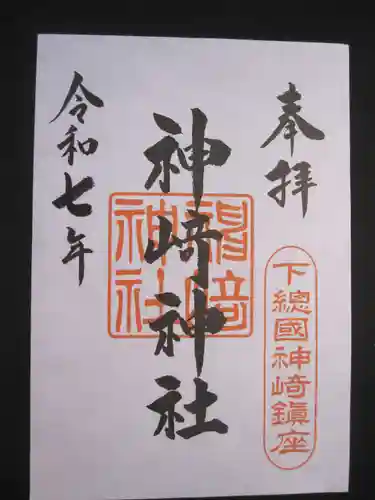 奉拝
下総國神崎鎮座
神崎神社
神崎神社
令和七年